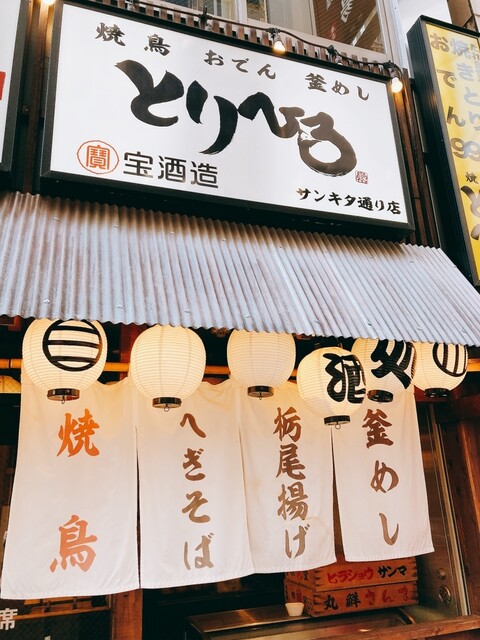 焼鳥 おでん 釜めし
とりひろ
寳 宝酒造
サンキタ通り店
酒
処
焼鳥
へぎそば
栃尾揚げ
釜めし
ヒラショウ サンマ
丸鮮 さんま
席